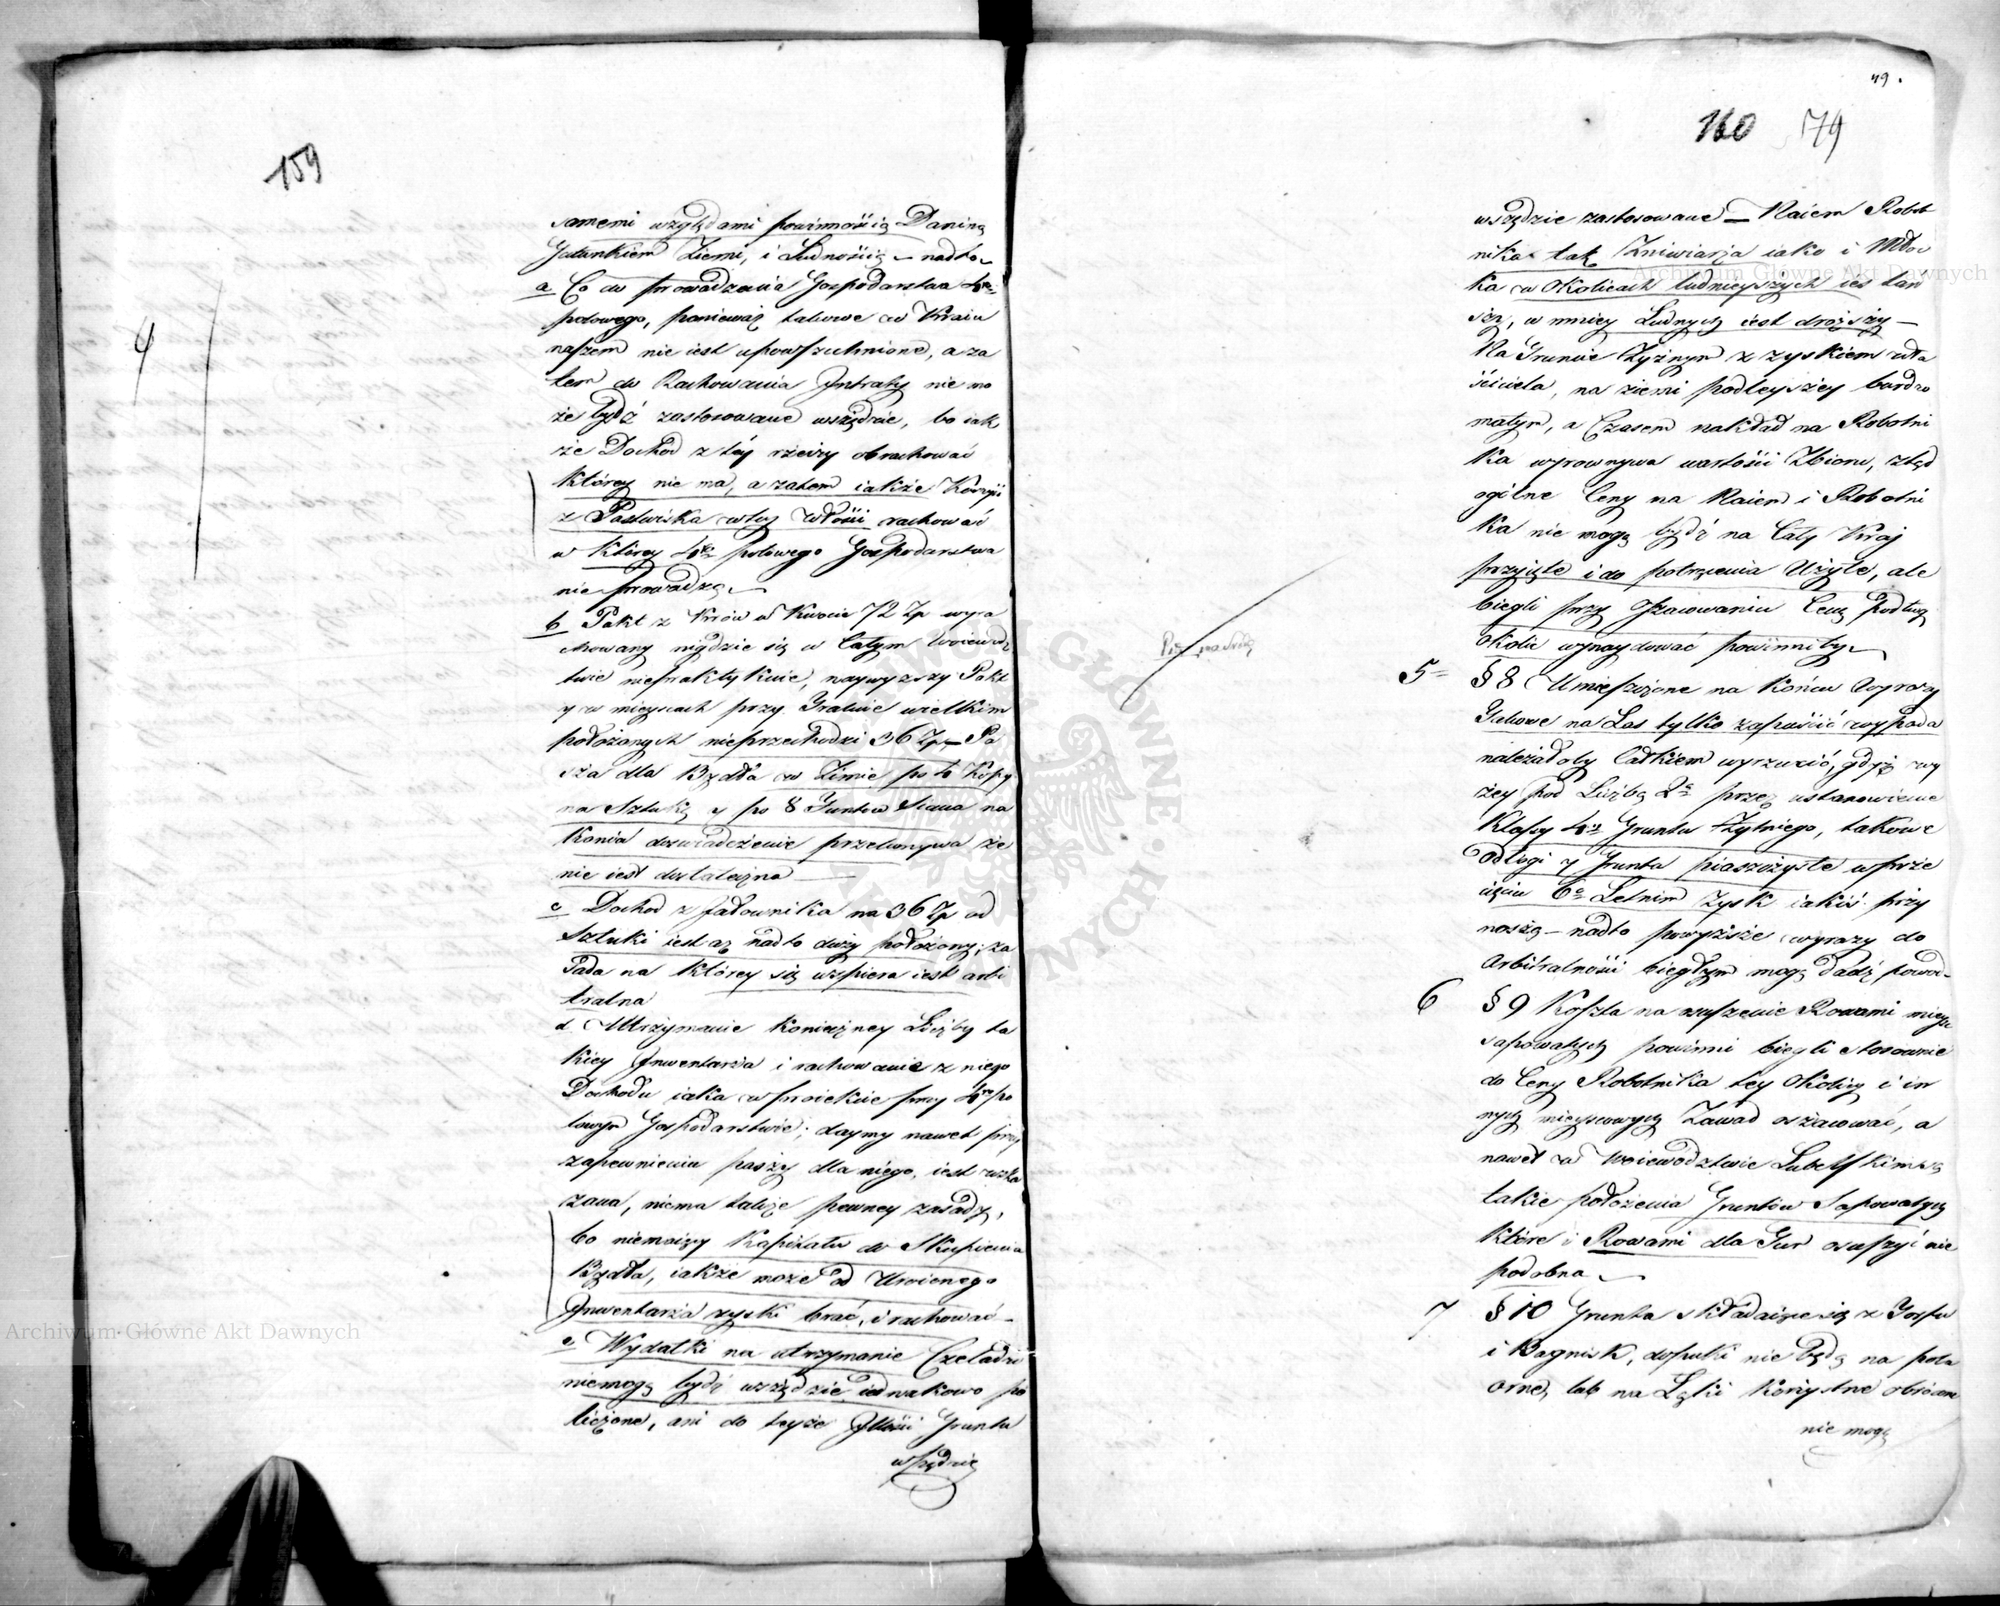 159
samemi względami powinnością Daniną
Gatunkiem Ziemi, i Ludnością – nadto –
a Co do prowadzenia Gospodarstwa 4ro
polowego, ponieważ takowe w Kraiu
naszem nie iest upowszechnione, a za
tem do Rachowania Intraty nie mo
że bydź zastosowane wszędzie, bo iak
że Dochod z tey rzeczy obrachować
ktorey nie ma, a zatem iakże Korzyści
z Pastwiska w tey Włości rachować
w ktorey 4ro polowego Gospodarstwa
nie prowadzą –
4
b Pakt z Krów w Kwocie 72 Zp wyra
chowany nigdzie się w Całym Woiewodz
twie niepraktykuie, naywyższy Pakt
y w mieyscach przy Trakcie wielkim
położonych nieprzechodzi 36 Zp – Pa
sza dla Bydła w Zimie po to Kopy
na Sztukę y po 8 Funtow Siana na
Konia doswiadczenie przekonywa że
nie iest dostateczna –
c Dochod z Jałownika na 36 Zp od
Sztuki iest aż nadto duży położony; za
sada na ktorey się wspiera iest arbi
tralna
d Utrzymanie koniecznej Liczby ta
kiey Inwentarza i rachowanie z niego
Dochodu iaka w proiekcie przy 4ro po
lowym Gospodarstwie; daymy nawet przy
zapewnieniu paszy dla niego, iest wska
zana, niema także pewney zasady,
bo niemaiący Kapitału do Skupienia
Bydła, iakże może od Uroionego
Inwentarza zyski brać, i rachować –
e Wydatki na utrzymanie Czeladzi
niemogą bydź wszędzie iednakowo po
liczone, ani do teyże Ilości Gruntu
wszędzie
79.
160 79
wszędzie zastosowane – Naiem Robot
nika tak Żniwiarza iako i Młoc
ka w Okolicach ludnieyszych ies tań
szy, w mniey Ludnych iest droższy –
Na Gruncie Żyznym z zyskiem wła
ściciela, na ziemi podleyszey bardzo
małym, a Czasem nakład na Robotni
ka wyrownywa wartości Zbioru, ztąd
ogólne Ceny na Naiem i Robotni
ka nie mogą bydź na Cały Kraj
przyięte i do potrącenia Użyte, ale
biegli przy Oszacowaniu Cenę podług
Okolic wynaydować powinniby –
5 = § 8 Umieszczone na końcu Wyrazy
Jakowe na Las tylko zapuścić wypada
należałoby Całkiem wyrzucić, gdyż wy
żey pod Liczbą 2ą przez ustanowienie
Klassy 4ey Gruntu Żytniego, takowe
Odłogi y Grunta piaszczyste w prze
ciągu 6o Letnim Zysk iakiś przy
noszą – nadto powyższe wyrazy do
Arbitralności biegłym mogą dadź powod –
6 § 9 Koszta na osuszenie Rowami mieysc
sapowatych powinni biegli stosownie
do Ceny Robotnika tey Okolicy i in
nych mieyscowych Zawad oszacować, a
nawet w Woiewództwie Lubelskim są
takie położenia Gruntów Sapowatych
które i Rowami dla Gur osuszyć nie
podobna –
7 § 10 Grunta składaiące się z Torfu
i Bagnisk, dopuki nie będą na pola
orne, lub na Łąki Korzystne obrócone
nie mogą
Archiwum Główne Akt Dawnych
Archiwum Główne Akt Dawnych